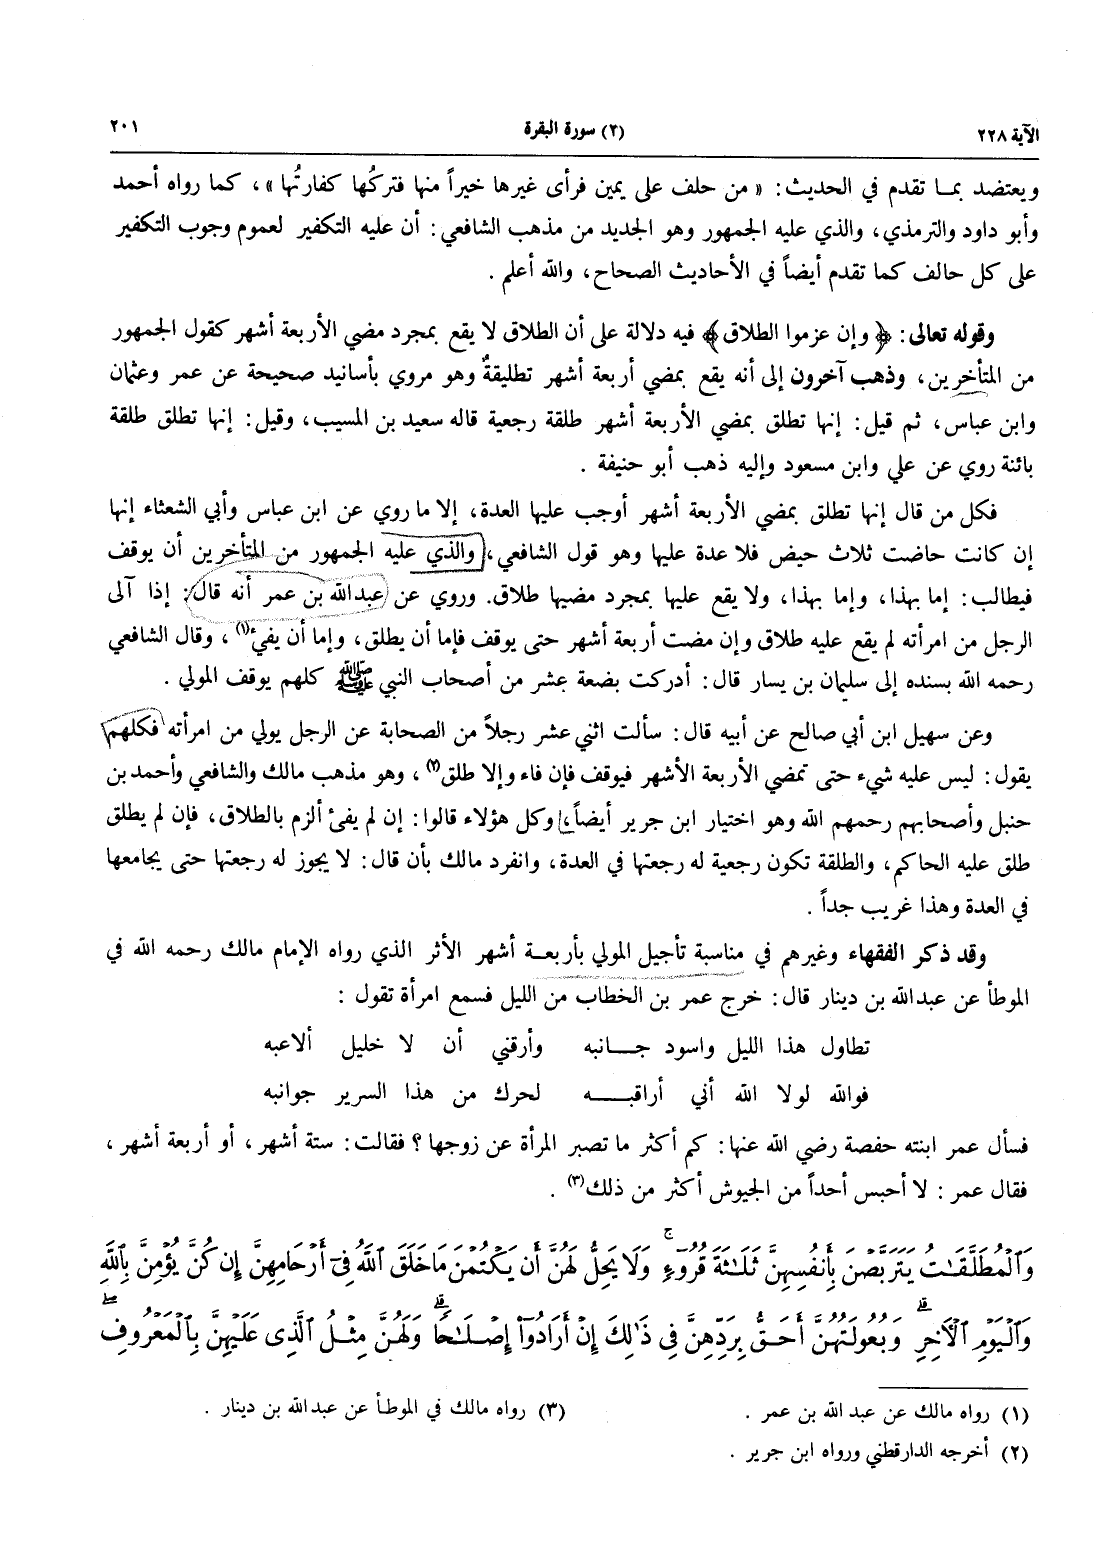 الآية ٢٢٨ (٢) سورة البقرة ٢٠١
ويعتضد بما تقدم في الحديث: « من حلف على يمين فرأى غيرها خيراً منها فتركُها كفارتُها »، كما رواه أحمد
وأبو داود والترمذي، والذي عليه الجمهور وهو الجديد من مذهب الشافعي: أن عليه التكفير لعموم وجوب التكفير
على كل حالف كما تقدم أيضاً في الأحاديث الصحاح، والله أعلم .
وقوله تعالى: ﴿ وإن عزموا الطلاق﴾ فيه دلالة على أن الطلاق لا يقع بمجرد مضي الأربعة أشهر كقول الجمهور
من المتأخرين، وذهب آخرون إلى أنه يقع بمضي أربعة أشهر تطليقةٌ وهو مروي بأسانيد صحيحة عن عمر وعثمان
وابن عباس، ثم قيل: إنها تطلق بمضي الأربعة أشهر طلقة رجعية قاله سعيد بن المسيب، وقيل: إنها تطلق طلقة
بائنة روي عن علي وابن مسعود وإليه ذهب أبو حنيفة .
فكل من قال إنها تطلق بمضي الأربعة أشهر أوجب عليها العدة، إلا ما روي عن ابن عباس وأبي الشعثاء إنها
إن كانت حاضت ثلاث حيض فلا عدة عليها وهو قول الشافعي، والذي عليه الجمهور من المتأخرين أن يوقف
فيطالب: إما بهذا، وإما بهذا، ولا يقع عليها بمجرد مضيها طلاق. وروي عن عبدالله بن عمر أنه قال: إذا آلى
الرجل من امرأته لم يقع عليه طلاق وإن مضت أربعة أشهر حتى يوقف فإما أن يطلق، وإما أن يفيء(١)، وقال الشافعي
رحمه الله بسنده إلى سليمان بن يسار قال: أدركت بضعة عشر من أصحاب النبي ﷺ كلهم يوقف المولي .
وعن سهيل ابن أبي صالح عن أبيه قال: سألت اثني عشر رجلاً من الصحابة عن الرجل يولي من امرأته فكلهم
يقول: ليس عليه شيء حتى تمضي الأربعة الأشهر فيوقف فإن فاء وإلا طلق(٢)، وهو مذهب مالك والشافعي وأحمد بن
حنبل وأصحابهم رحمهم الله وهو اختيار ابن جرير أيضاً، وكل هؤلاء قالوا: إن لم يفئ ألزم بالطلاق، فإن لم يطلق
طلق عليه الحاكم، والطلقة تكون رجعية له رجعتها في العدة، وانفرد مالك بأن قال: لا يجوز له رجعتها حتى يجامعها
في العدة وهذا غريب جداً .
وقد ذكر الفقهاء وغيرهم في مناسبة تأجيل المولي بأربعة أشهر الأثر الذي رواه الإمام مالك رحمه الله في
الموطأ عن عبدالله بن دينار قال: خرج عمر بن الخطاب من الليل فسمع امرأة تقول :
تطاول هذا الليل واسود جـانبه وأرقني أن لا خليل ألاعبه
فوالله لولا الله أني أراقبـه لحرك من هذا السرير جوانبه
فسأل عمر ابنته حفصة رضي الله عنها: كم أكثر ما تصبر المرأة عن زوجها ؟ فقالت: ستة أشهر، أو أربعة أشهر،
فقال عمر : لا أحبس أحداً من الجيوش أكثر من ذلك(٣) .
وَٱلْمُطَلَّقَـٰتُ يَتَرَبَّصْنَ بِأَنفُسِهِنَّ ثَلَـٰثَةَ قُرُوٓءٍ ۚ وَلَا يَحِلُّ لَهُنَّ أَن يَكْتُمْنَ مَا خَلَقَ ٱللَّهُ فِىٓ أَرْحَامِهِنَّ إِن كُنَّ يُؤْمِنَّ بِٱللَّهِ
وَٱلْيَوْمِ ٱلْـَٔاخِرِ ۚ وَبُعُولَتُهُنَّ أَحَقُّ بِرَدِّهِنَّ فِى ذَٰلِكَ إِنْ أَرَادُوٓا۟ إِصْلَـٰحًا ۚ وَلَهُنَّ مِثْلُ ٱلَّذِى عَلَيْهِنَّ بِٱلْمَعْرُوفِ ۚ
(١) رواه مالك عن عبد الله بن عمر . (٣) رواه مالك في الموطأ عن عبدالله بن دينار .
(٢) أخرجه الدارقطني ورواه ابن جرير .